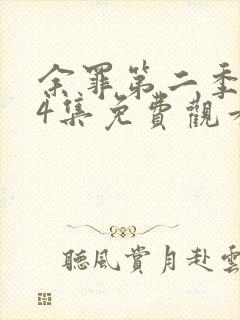 余罪第二季
4集免費觀看
聽風賞月赴雲